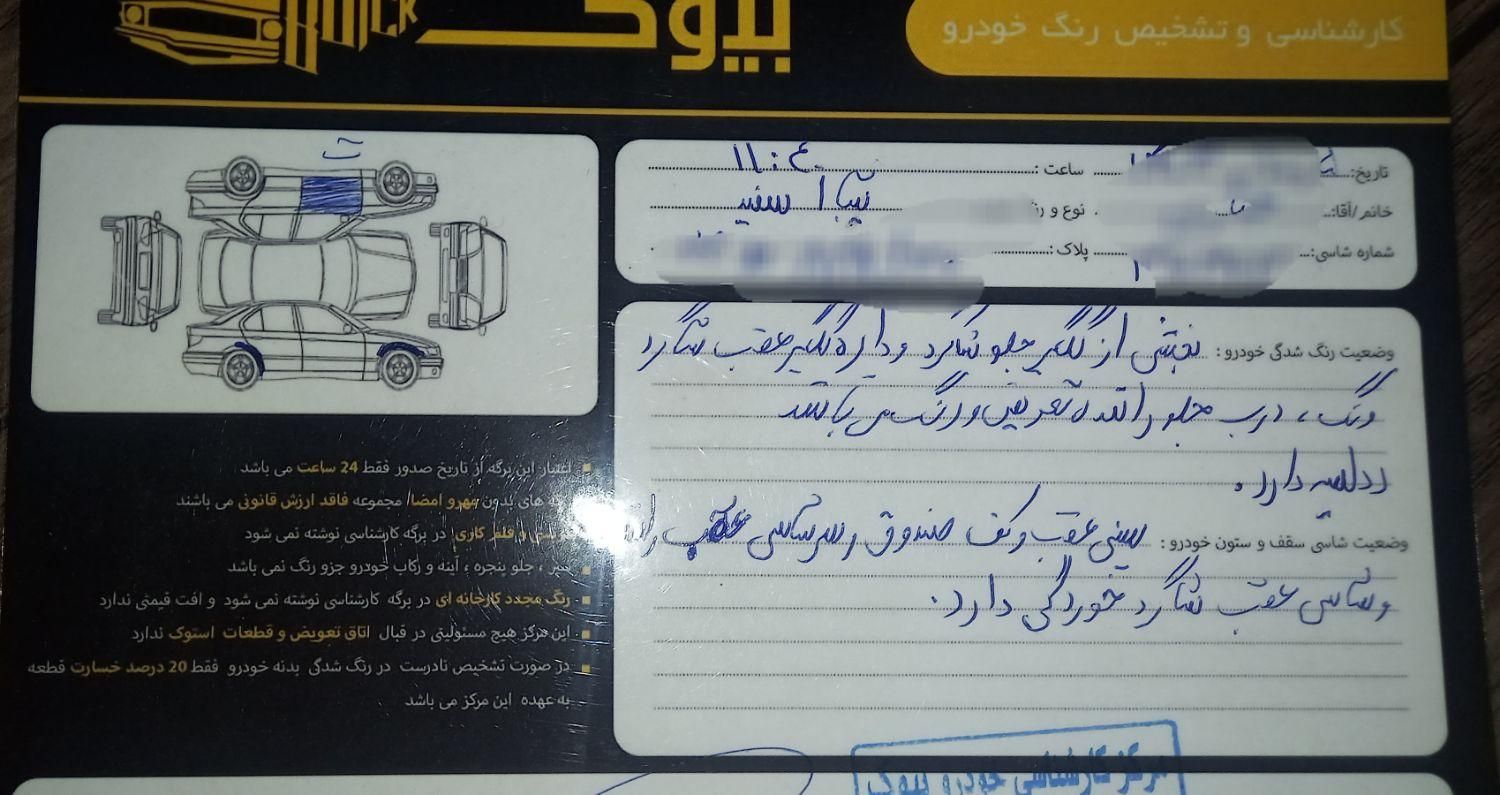 بیوک
کارشناسی و تشخیص رنگ خودرو
تاریخ:
ساعت : ۱۱:۴۰
خانم /آقا:
نوع و
تیبا ۱ سفید
شماره شاسی:
پلاک :
ت
وضعیت رنگ شدگی خودرو : بخشی از گلگیر جلو شاگرد و دایره گلگیر عقب شاگرد
رنگ ، درب جلو راننده تعویض و رنگ می باشد
دارد .
وضعیت شاسی سقف و ستون خودرو : سینی عقب و کف صندوق و سرشاسی عقب
و شاسی عقب شاگرد خوردگی دارد .
اعتبار این برگه از تاریخ صدور فقط 24 ساعت می باشد
های بدون مهرو امضا مجموعه فاقد ارزش قانونی می باشند
و قلم کاری در برگه کارشناسی نوشته نمی شود
سپر ، جلو پنجره ، آینه و رکاب خودرو جزو رنگ نمی باشد
رنگ مجدد کارخانه ای در برگه کارشناسی نوشته نمی شود و افت قیمتی ندارد
این مرکز هیچ مسئولیتی در قبال اتاق تعویض و قطعات استوک ندارد
در صورت تشخیص نادرست در رنگ شدگی بدنه خودرو فقط 20 درصد خسارت قطعه
به عهده این مرکز می باشد
مرکز کارشناسی خودرو بیوک